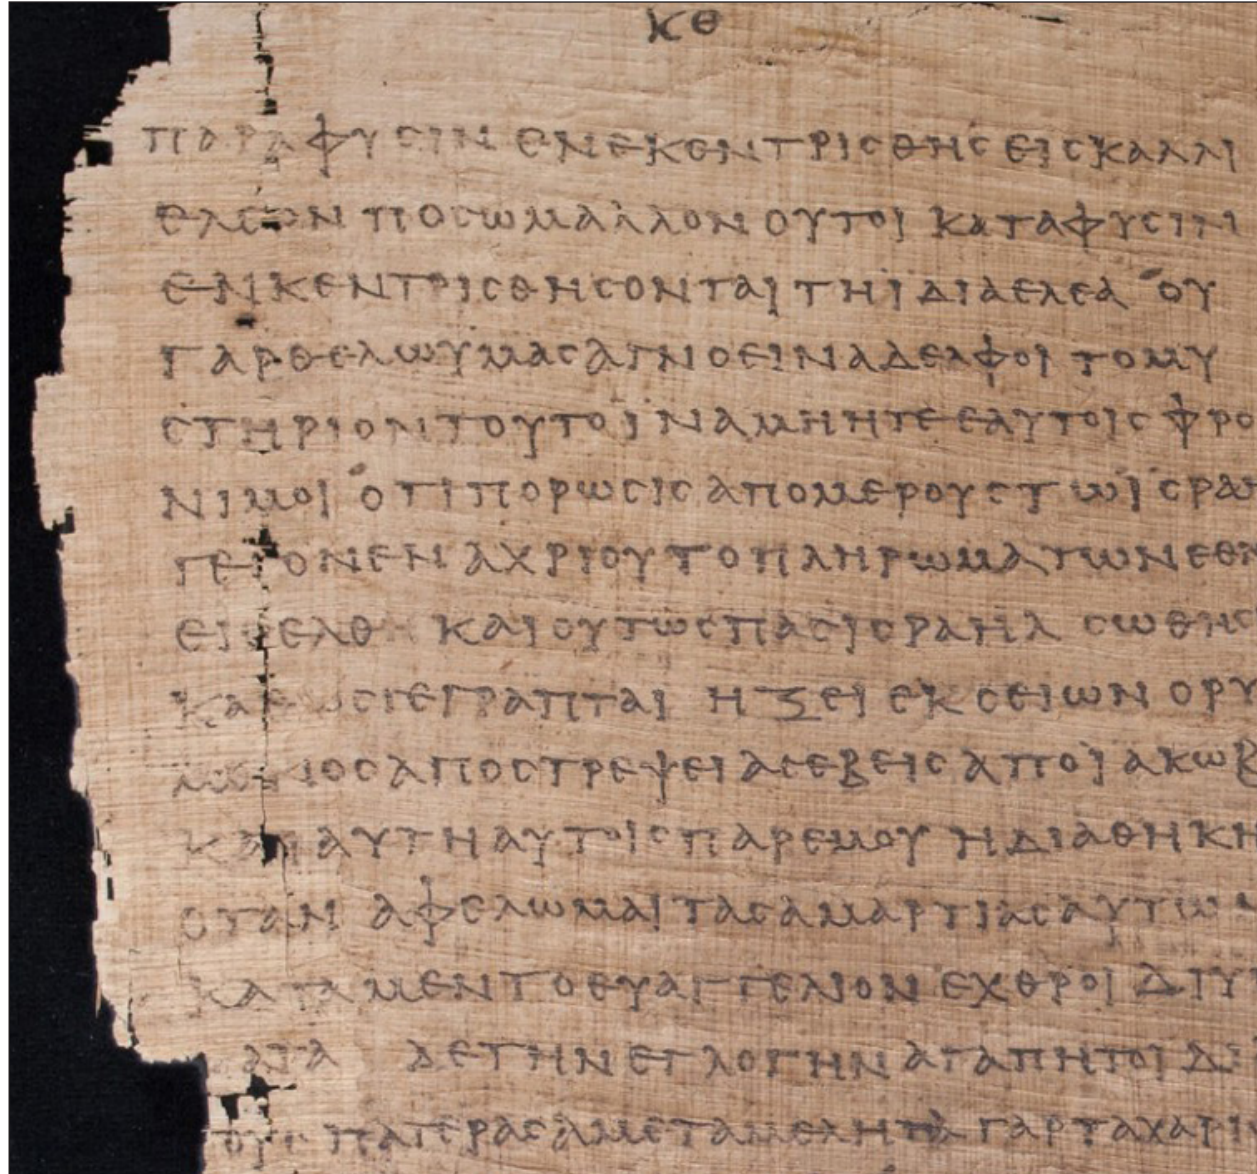 ΚΘ
ΠΑΡΑΦΥСΙΝ ΕΝΕΚΕΝΤΡΙСΘΗС ΕΙС ΚΑΛΛΙ
ΕΛΕΟΝ ΠΟСΩΜΑΛΛΟΝ ΟΥΤΟΙ ΚΑΤΑΦΥСΙΝ
ΕΝΚΕΝΤΡΙСΘΗСΟΝΤΑΙ ΤΗΙΔΙΑΕΛΕΑ ΟΥ
ΓΑΡΘΕΛΩΥΜΑСΑΓΝΟΕΙΝΑΔΕΛΦΟΙ ΤΟΜΥ
СΤΗΡΙΟΝΤΟΥΤΟΙΝΑΜΗΗΤΕΕΑΥΤΟΙС ΦΡΟ
ΝΙΜΟΙ ΟΤΙΠΟΡΩСΙСΑΠΟΜΕΡΟΥСΤΩΙСΡΑ
ΓΕΓΟΝΕΝ ΑΧΡΙΟΥΤΟΠΛΗΡΩΜΑΤΩΝΕΘ
ΕΙСΕΛΘ ΚΑΙΟΥΤΩСΠΑСΙСΡΑΗΛ СΩΘΗС
ΚΑΘΩСΓΕΓΡΑΠΤΑΙ ΗΞΕΙ ΕΚСΕΙΩΝ ΟΡΥ
ΑΠΟСΤΡΕΨΕΙΑСΕΒΕΙСΑΠΟΙΑΚΩΒ
ΚΑΙΑΥΤΗΑΥΤΟΙСΠΑΡΕΜΟΥ ΗΔΙΑΘΗΚΗ
ΟΤΑΝ ΑΦΕΛΩΜΑΙΤΑСΑΜΑΡΤΙΑСΑΥΤΩ
ΚΑΤΑΜΕΝΤΟΕΥΑΓΓΕΛΙΟΝ ΕΧΘΡΟΙ ΔΙΥ
ΔΕΤΗΝΕΓΛΟΓΗΝΑΓΑΠΗΤΟΙΔΙ
ΤΟΥС ΠΑΤΕΡΑСΑΜΕΤΑΜΕΛΗΤΑ ΓΑΡΤΑΧΑΡΙ